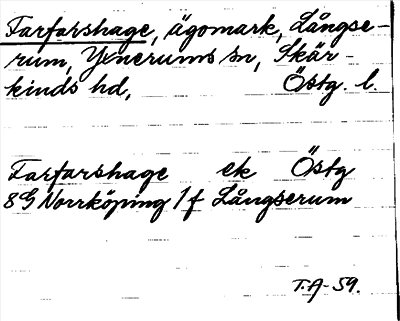 Farfarshage, ägomark, Långse-
rum, Yxnerums sn, Skär-
kinds hd, Östg. l.
Farfarshage ek Östg
8G Norrköping 1f Långserum
T.A-59.